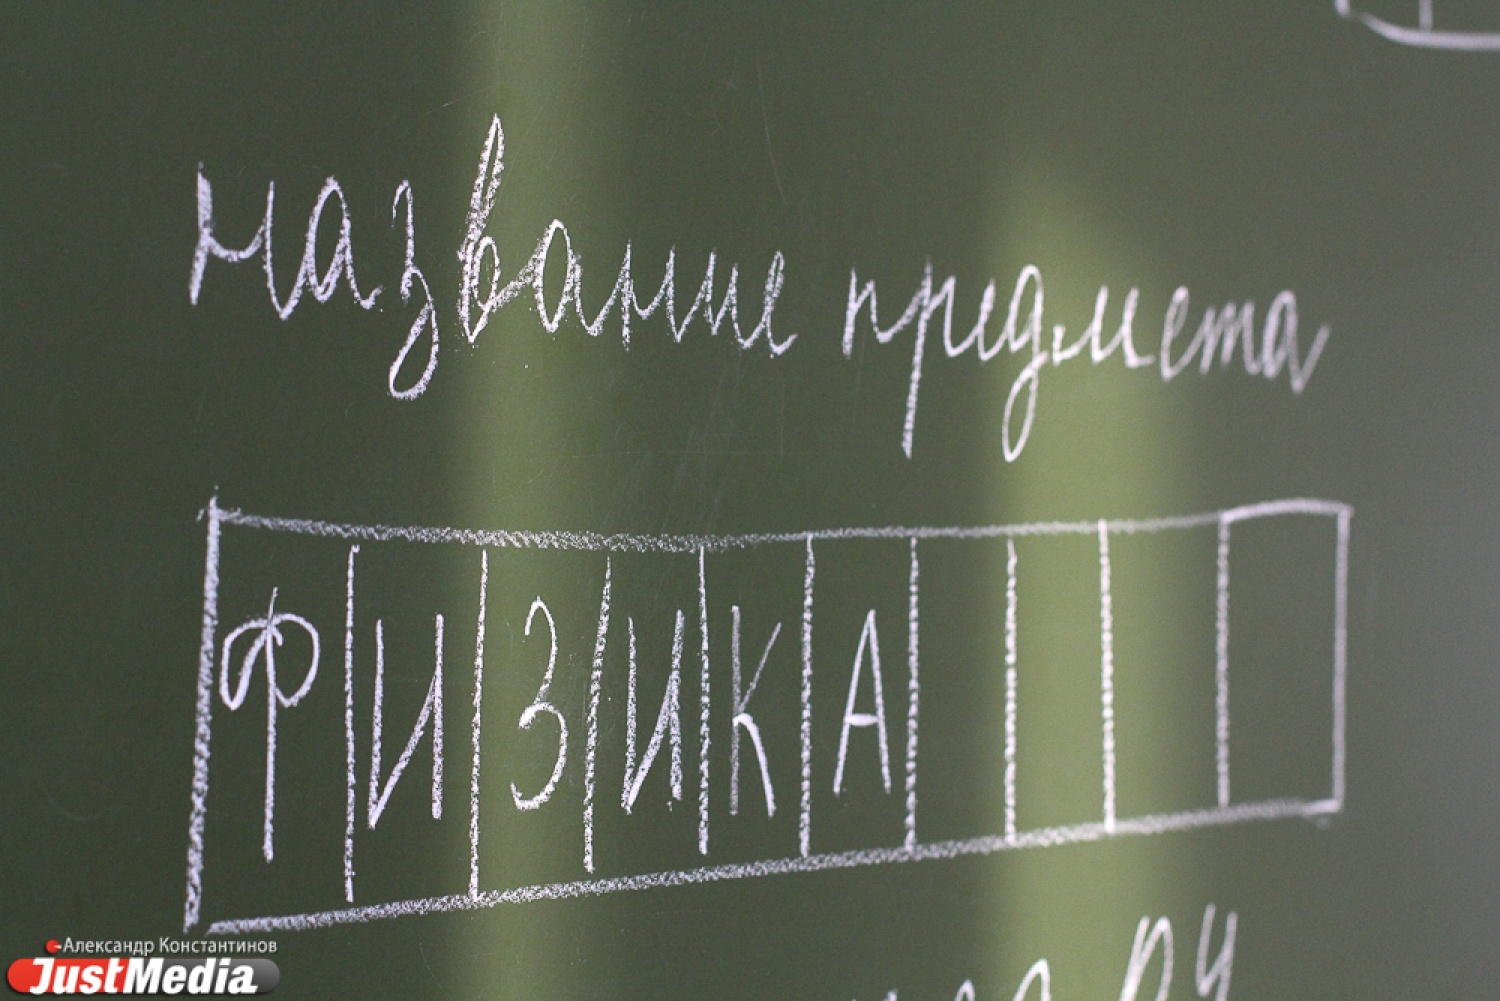 название предмета
ФИЗИКА
Александр Константинов
JustMedia